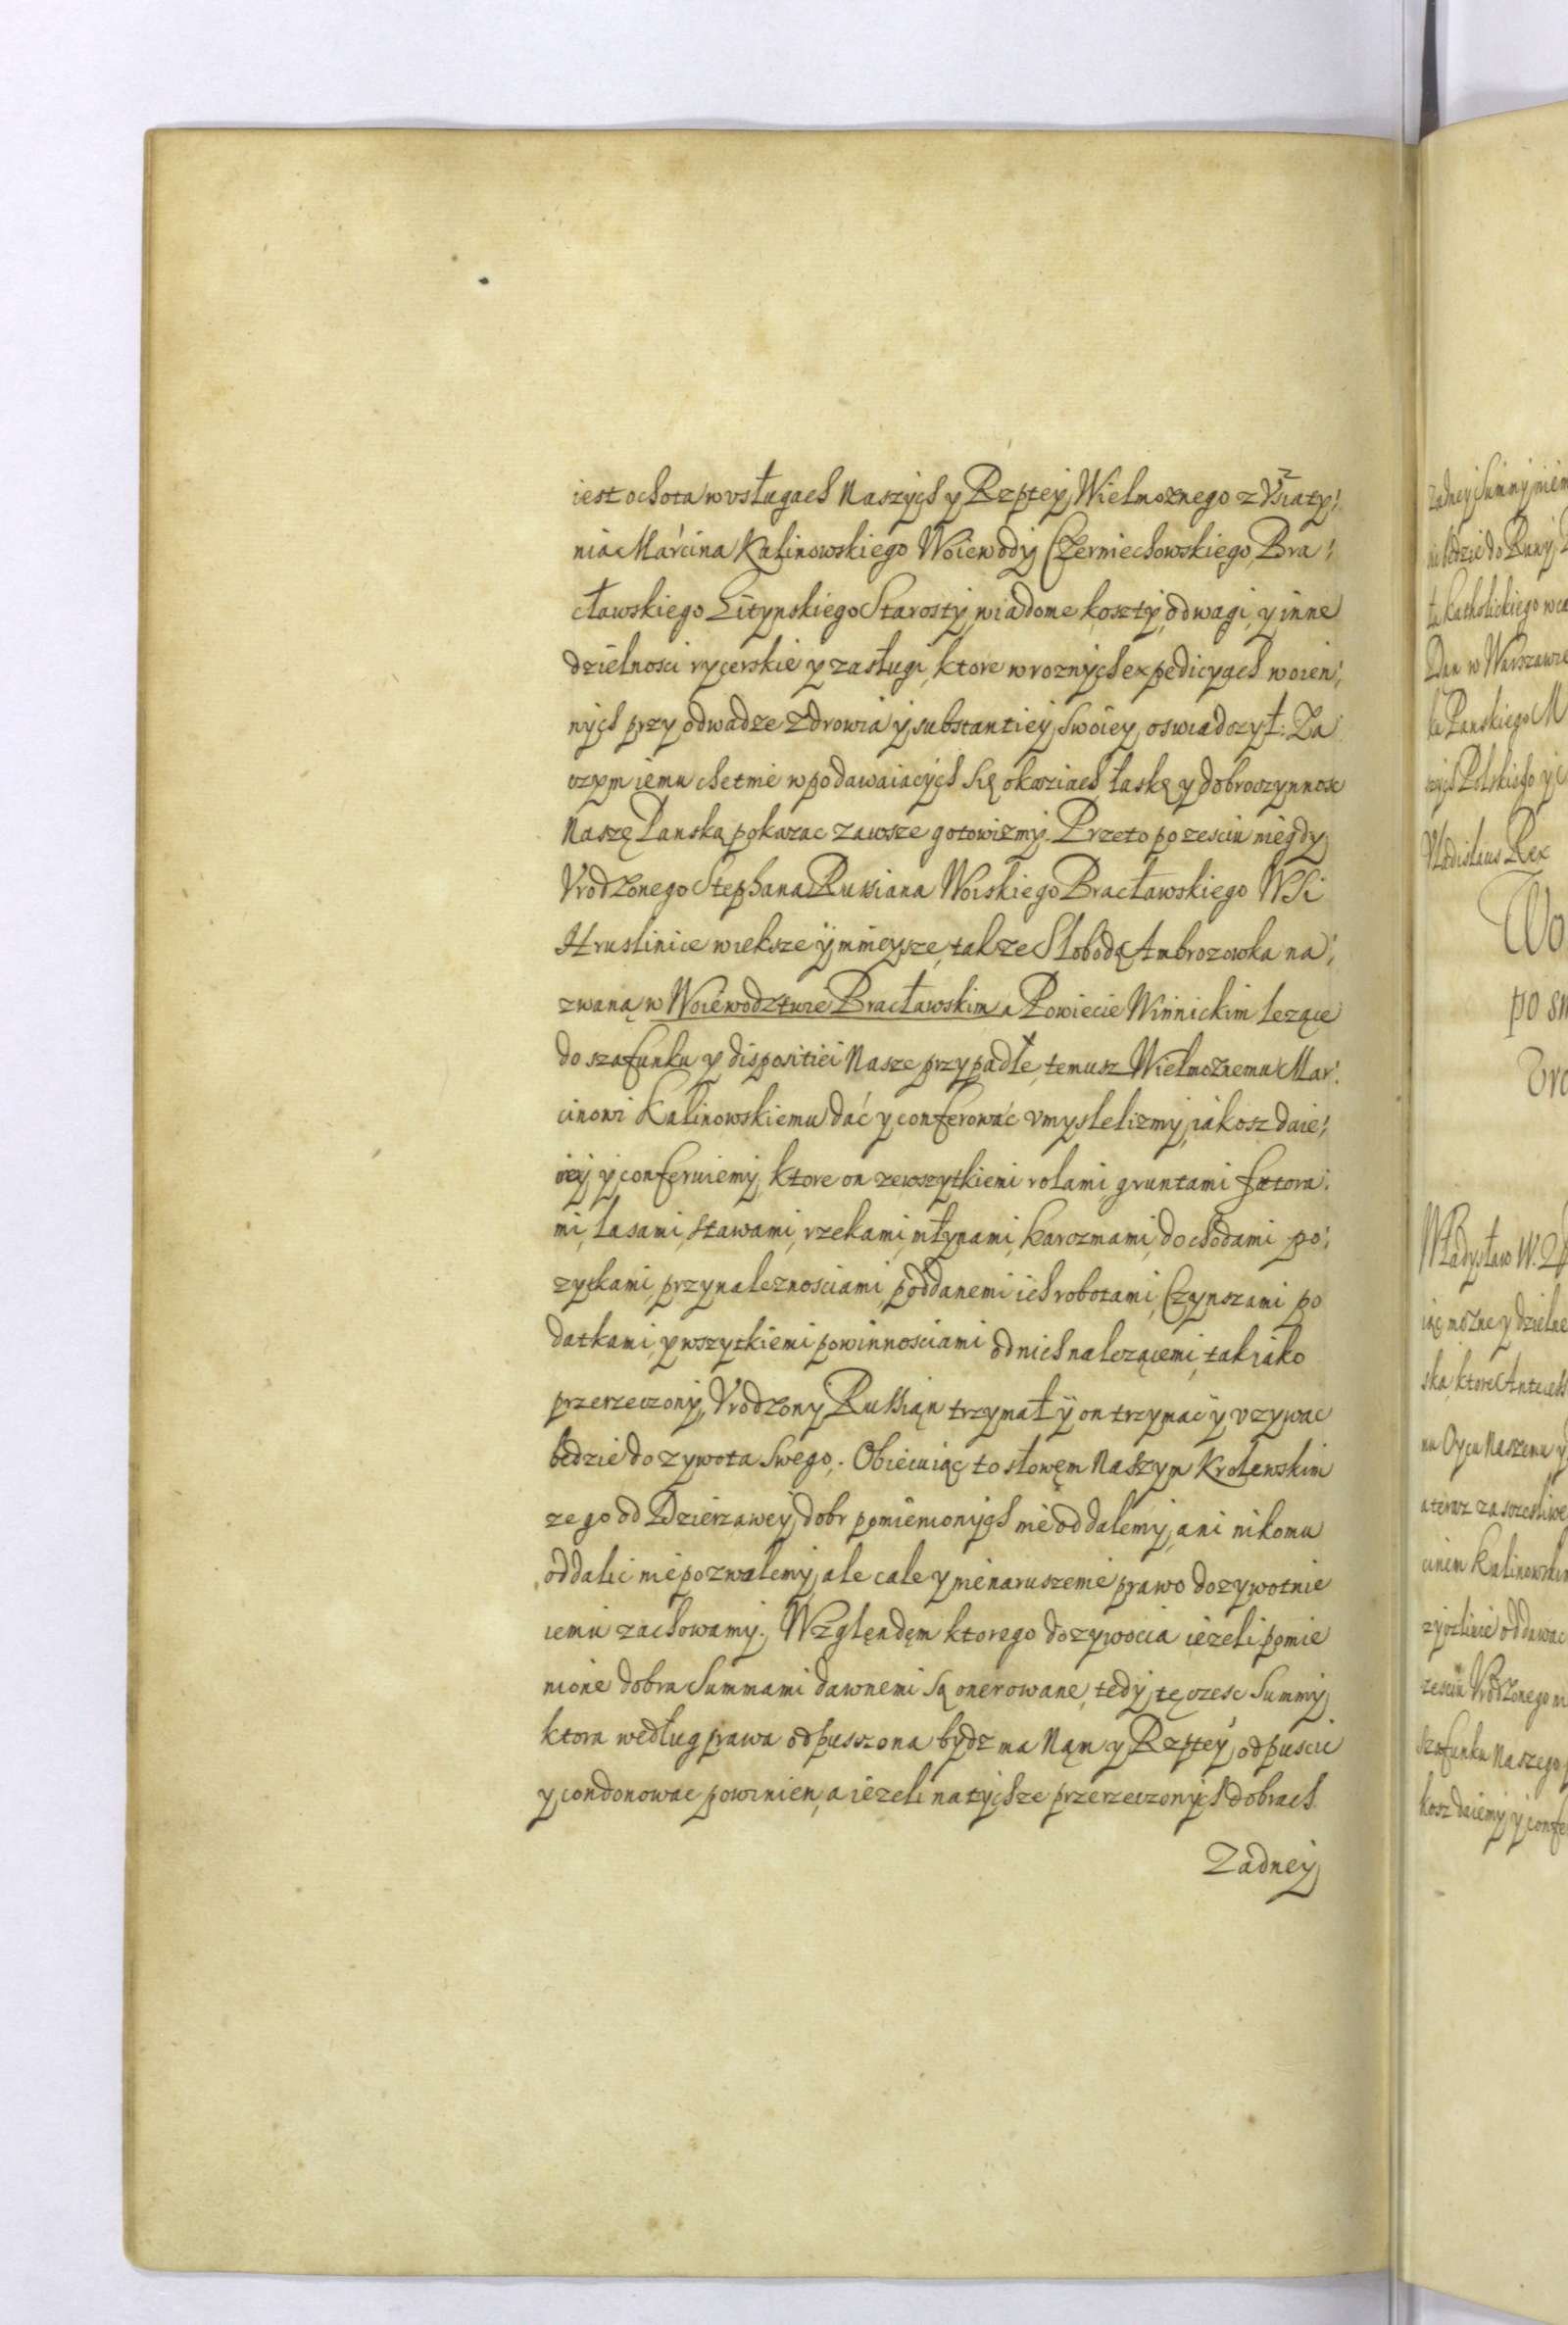 iest ochota w vsługach Naszych y Rzptey Wielmoznego z Vsiaty-
nia Marcina Kalinowskiego Woiewody Czerniechowskiego, Bra-
cławskiego Litynskiego Starosty, wiadome koszty, odwagi, y inne
dzielnosci rycerskie y zasługi, ktore w roznych expedicyach woien-
nych przy odwadze zdrowia y substantiey swoiey, oswiadczył: Za
czym iemu chetnie w podawaiacych się okaziach łaskę y dobroczynnosc
Naszę Panską pokazac zawsze gotowizmy. Przeto po zesciu niegdy
Vrodzonego Stephana Russiana Woiskiego Bracławskiego Wsi
Hruslinice wieksze y mnieysze, takze Slobodą Ambrozowka na-
zwaną w Woiewodztwie Bracławskim a Powiecie Winnickim lezące
do szafunku y dispositiei Nasze przypadłe, temusz Wielmoznemu Mar-
cinowi Kalinowskiemu dać y conferować vmyslelizmy, iakosz daie-
my y conferuiemy, ktore on ze wszytkiemi rolami, gruntami futora-
mi, lasami, stawami, rzekami, młynami, karczmami, dochodami po-
zytkami, przynaleznosciami, poddanemi ich robotami, Czynszami po
datkami, y wszytkiemi powinnosciami od nich nalezącemi, tak iako
przerzeczony, Vrodzony Russian trzymał y on trzymac y vzywac
bedzie do zywota swego. Obiecuiąc to słowem Naszym Krolewskim
ze go od Dzierzawey, dobr pomienionych nie oddalemy, ani nikomu
oddalic nie pozwalemy, ale cale y nienaruszenie prawo dozywotnie
iemu zachowamy. Względem ktorego dozywocia iezeli pomie
nione dobra Summami dawnemi są onerowane, tedy tę czesc Summy
ktora według prawa odpuszzona bydz ma Nąm y Rzptey, odpuscic
y condonowac powinien, a iezeli na tychze przerzeczonych dobrach
Zadney
zadney Summy niem
bedzie do
Katholickiego wca
Dan w Warszawie
Panskiego M
Polskiego y
Vladislaus Rex
Wo
po sm
Władysław W.
mozne y dzielne
ska, ktore Antecess
Oycu Naszemu y
a teraz za szczesliwe
cinem Kalinowskim
oddawac
zesciu Vrodzonego
Szafunku Naszego
kosz daiemy y confe